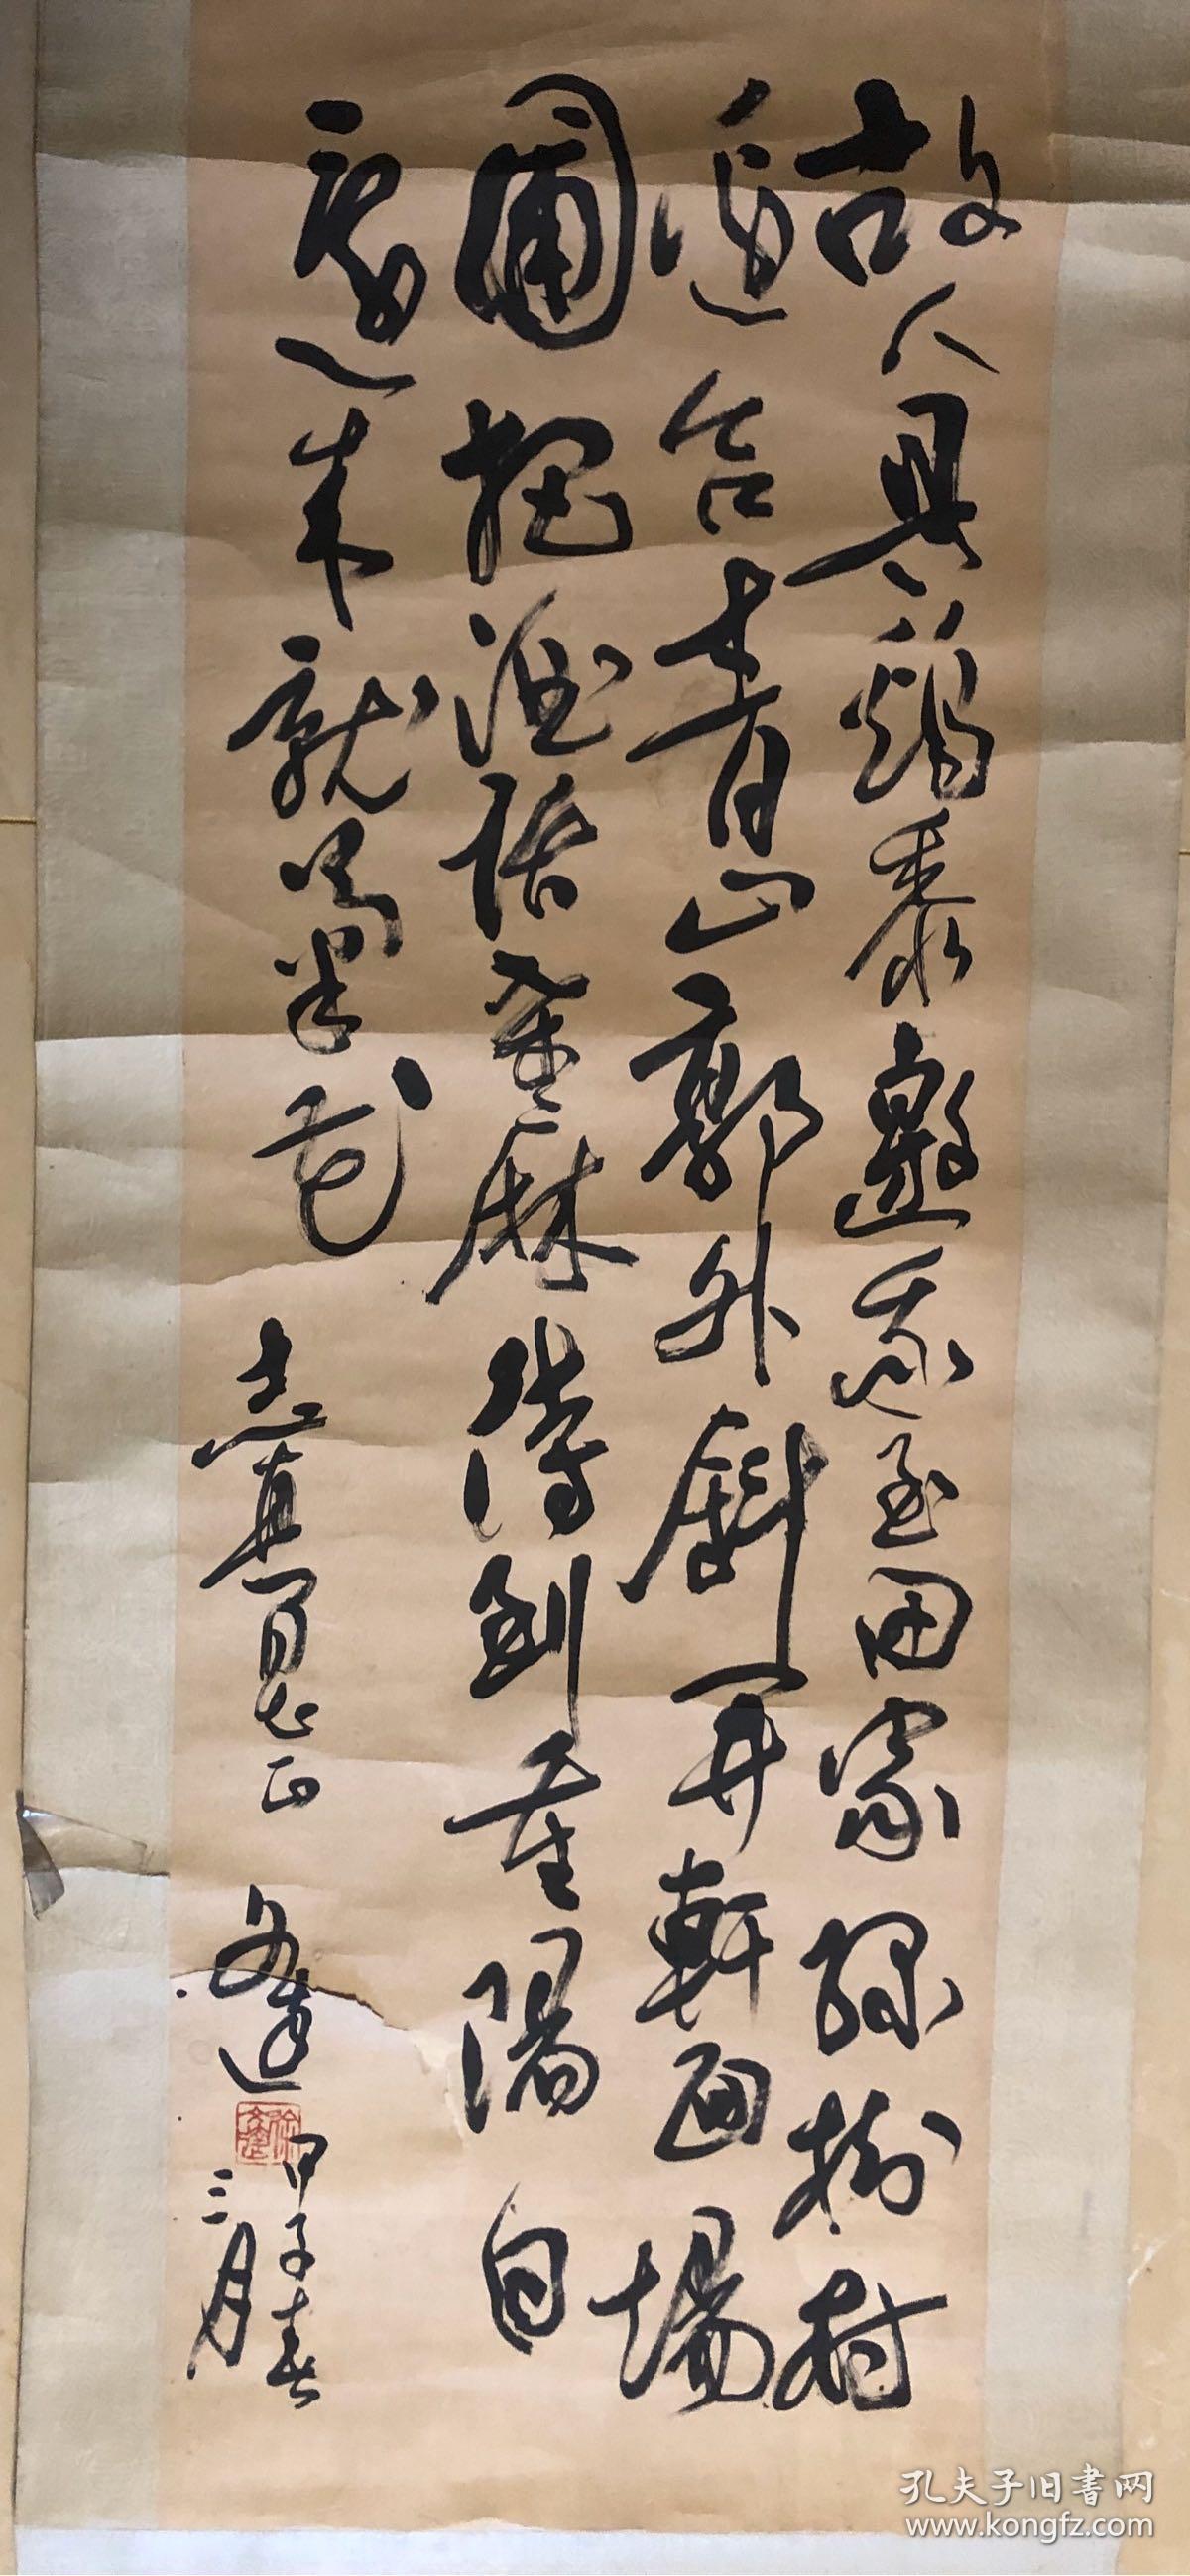 故人具鷄黍邀我至田家绿樹村
邊合青山郭外斜开軒面場
圃把酒話桑麻待到重陽日
還來就菊花
志真同志正
逢
甲子春
三月
孔夫子旧书网
www.kongfz.com